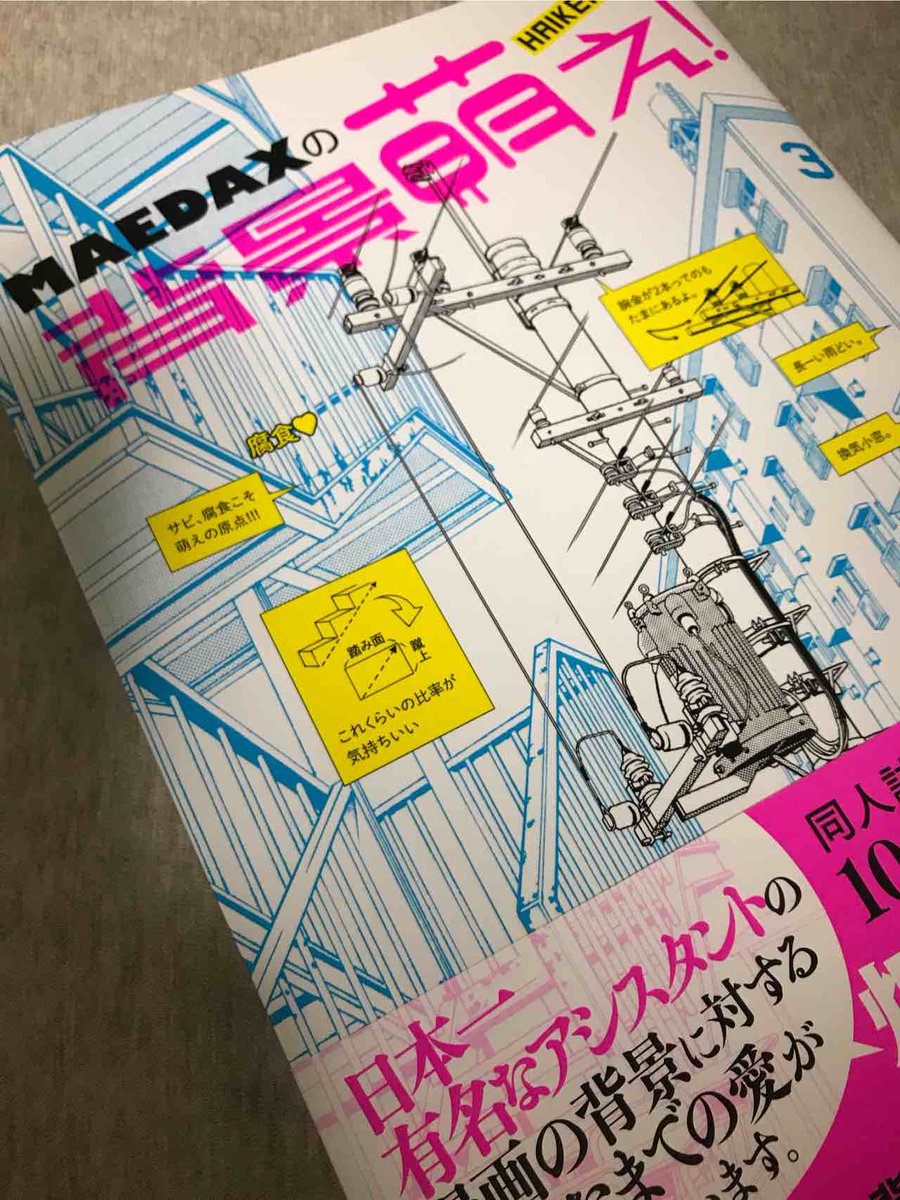 HAIKE
MAEDAXの
背景萌え!
腕金が2本ってのも
たまにあるよ。
長ーい雨どい。
換気小窓。
腐食♥
サビ、腐食こそ
萌えの原点!!!
踏み面
蹴上
これくらいの比率が
気持ちいい
同人誌
10
日本一
有名なアシスタントの
漫画の背景に対する
までの愛が
ます。